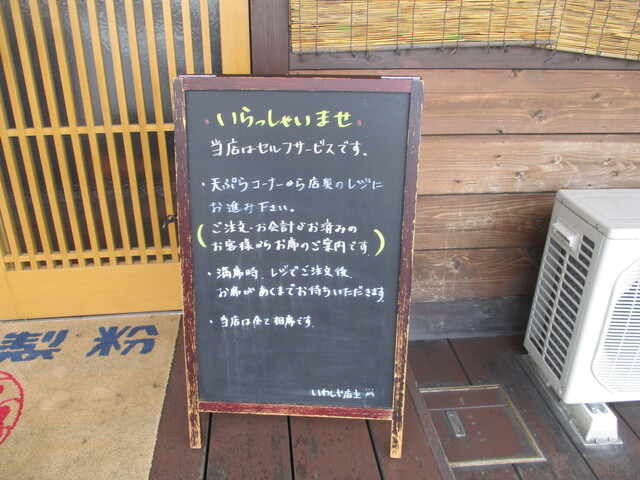 ・いらっしゃいませ・
当店はセルフサービスです。
・天ぷらコーナーから店製のレジに
お進み下さい。
(ご注文・お会計がお済みの
お客様からお席のご案内です。)
・満席時、レジでご注文後、
お席があくまでお待ちいただきます。
・当店は全て相席です。
いわしや店主
製粉